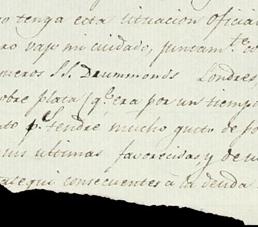 o tenga esta situacion oficial
ro vajo mi cuidado, juntam.te co
meros S.S. Drummonds Londres
sobre plata, q.e era por un tiempo
to p.r tendré mucho gusto de po
mis ultimas favorecidas, y de u
aseguí consecuentes à la deuda